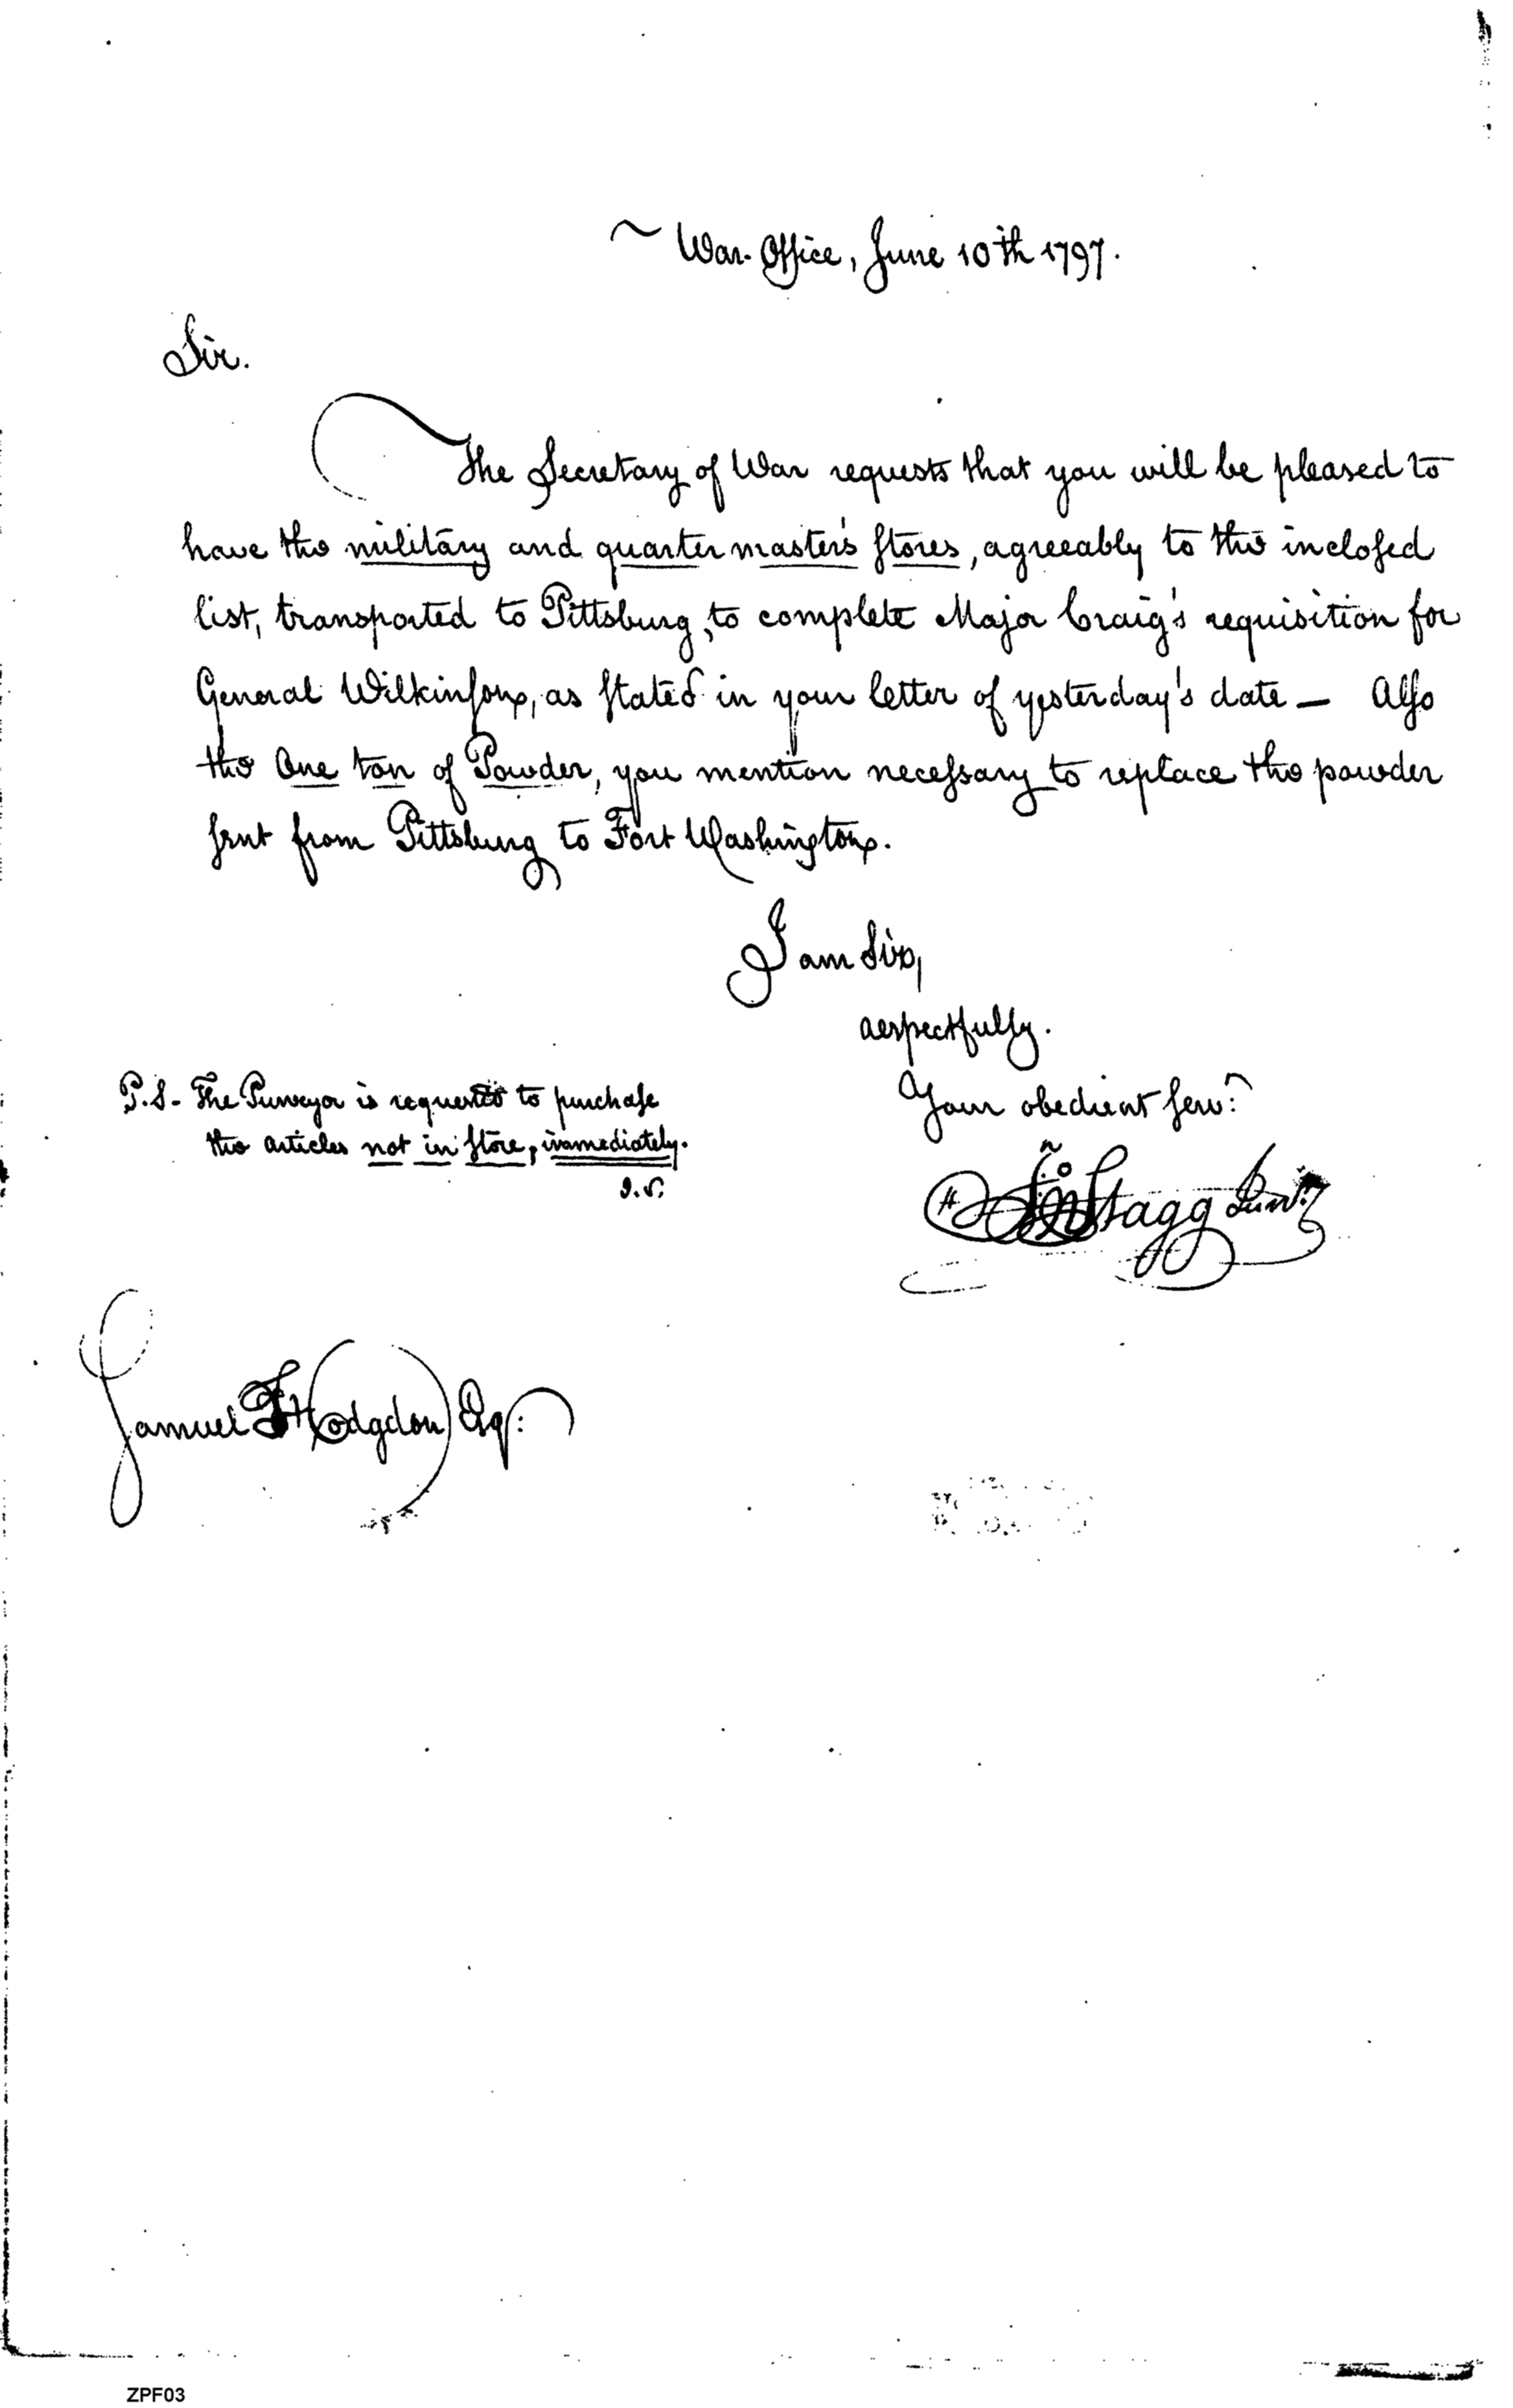 War Office, June 10th 1797.
Sir.
The Secretary of War requests that you will be pleased to
have the military and quarter master's stores, agreeably to the inclosed
list, transported to Pittsburg, to complete Major Craig's requisition for
General Wilkinson, as stated in your letter of yesterday's date — Also
the One ton of Powder, you mention necessary to replace the powder
sent from Pittsburg to Fort Washington.
I am Sir,
respectfully.
Your obedient serv.t
Jno Stagg Junr.
P.S. - The Purveyor is requested to purchase
the articles not in store, immediately.
J.S.
Samuel Hodgdon Esq:
ZPF03